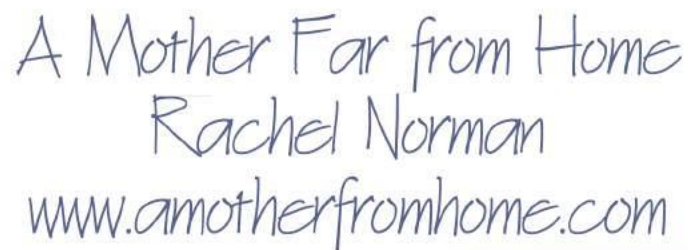 A Mother Far from Home
Rachel Norman
www.amotherfromhome.com